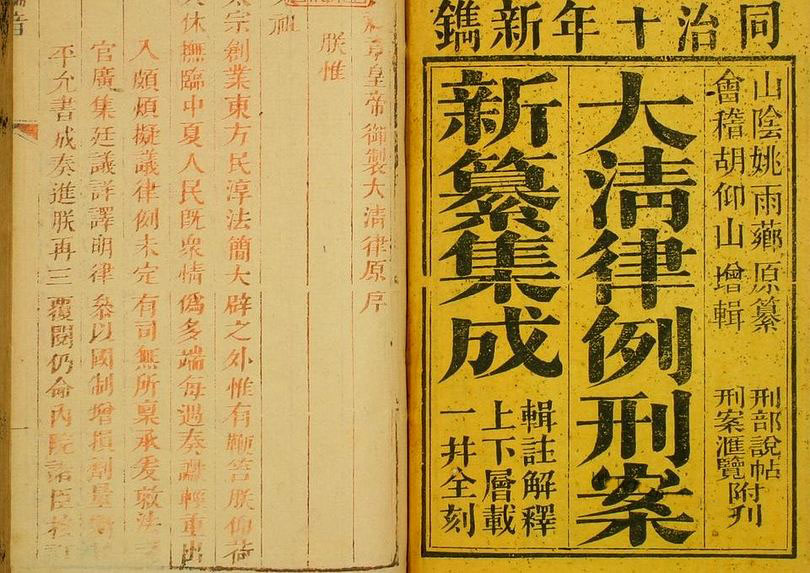 同治十年新鐫
山陰姚雨薌原纂
會稽胡仰山增輯
刑部說帖
刑案滙覽附刋
大淸律例刑案
新纂集成
輯註解釋
上下層載
一并全刻
皇帝御製大清律原序
朕惟
祖
宗創業東方民淳法簡大辟之外惟有鞭笞朕仰荷
休撫臨中夏人民既衆情僞多端每遇奏讞輕重出
入頗煩擬議律例未定有司無所稟承爰敕法
官廣集廷議詳譯明律叅以國制增損劑量
平允書成奏進朕再三覆閱仍命內院諸臣